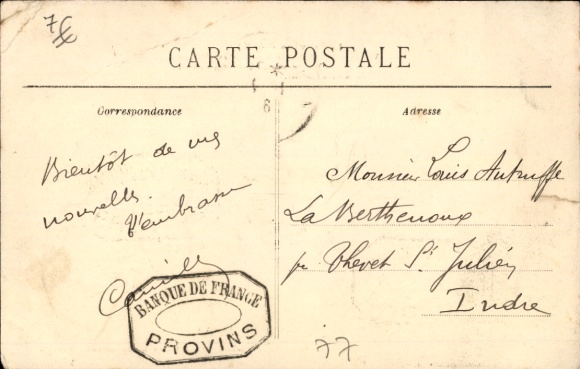 7€
CARTE POSTALE
Correspondance
Adresse
8
Bientôt de vos
nouvelles.
t'embrasse
Camille
BANQUE DE FRANGE
PROVINS
Monsieur Louis
La Berthenoux
par Thevet St Julien
Indre
77